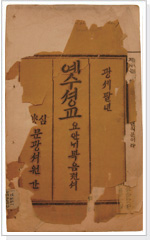 광셔팔년
예수셩교
요안ᄂᆡ복음젼셔
심양
문광셔원
간